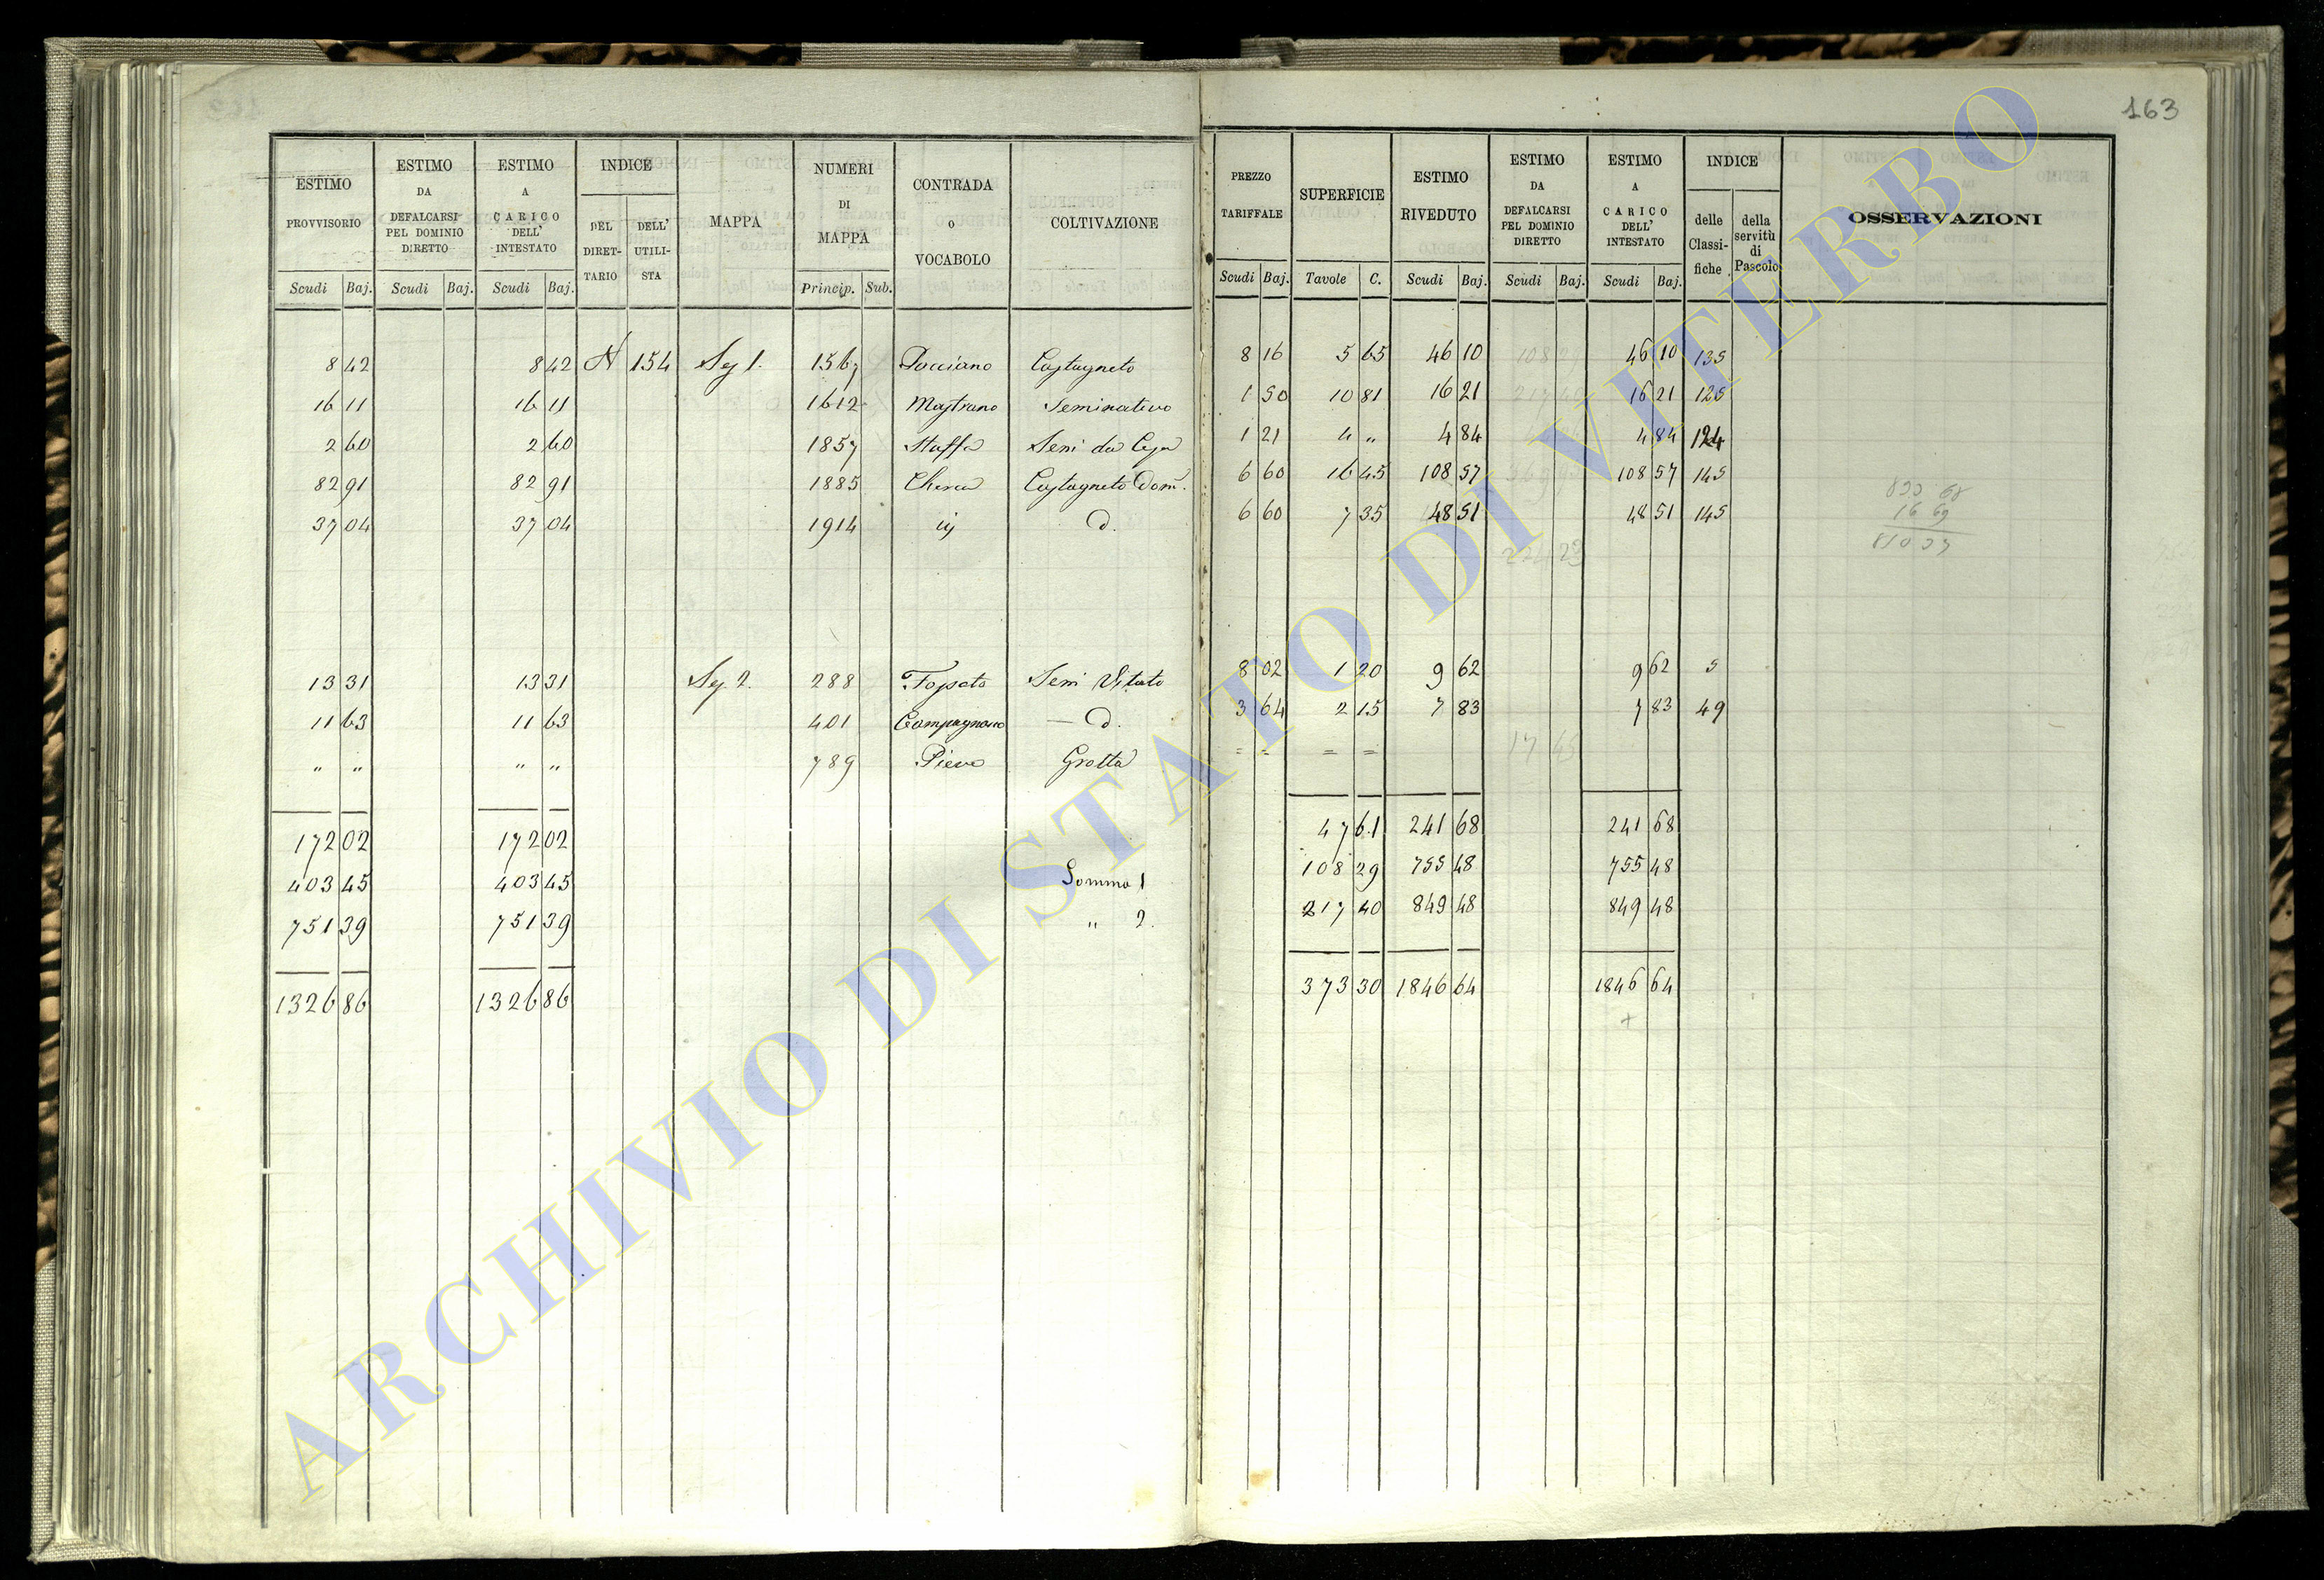 163
ESTIMO PROVVISORIO
ESTIMO DA DEFALCARSI PEL DOMINIO DIRETTO
ESTIMO A CARICO DELL' INTESTATO
INDICE
DEL DIRET-TARIO
DELL' UTILI-STA
MAPPA
NUMERI DI MAPPA
CONTRADA O VOCABOLO
COLTIVAZIONE
PREZZO TARIFFALE
SUPERFICIE
ESTIMO RIVEDUTO
ESTIMO DA DEFALCARSI PEL DOMINIO DIRETTO
ESTIMO A CARICO DELL' INTESTATO
INDICE
delle Classi-fiche
della servitù di Pascolo
OSSERVAZIONI
Scudi Baj. Scudi Baj. Scudi Baj. Princip. Sub. Scudi Baj. Tavole C. Scudi Baj. Scudi Baj. Scudi Baj.
8 42 8 42 N 154 Sez 1. 1567 Pocciano Castagneto 8 16 5 65 46 10 46 10 135
16 11 16 11 1612 Mastrano Seminativo 1 50 10 81 16 21 16 21 125
2 60 2 60 1857 Staffa Semi da 1 21 4 " 4 84 4 84 124
82 91 82 91 1885 Castagneto Dom. 6 60 16 45 108 57 108 57 145
37 04 37 04 1914 d. 6 60 7 35 48 51 48 51 145
224 23
13 31 13 31 Sez. 2. 288 Semi Vitato 8 02 1 20 9 62 9 62 5
11 63 11 63 401 Campagnano — d. 3 64 2 15 7 83 7 83 49
" " " " 789 Pieve Grotta = = = =
17 45
172 02 172 02 47 61 241 68 241 68
403 45 403 45 Somma 1 108 29 755 48 755 48
751 39 751 39 " 2. 217 40 849 48 849 48
1326 86 1326 86 373 30 1846 64 1846 64
+
ARCHIVIO DI STATO DI VITERBO